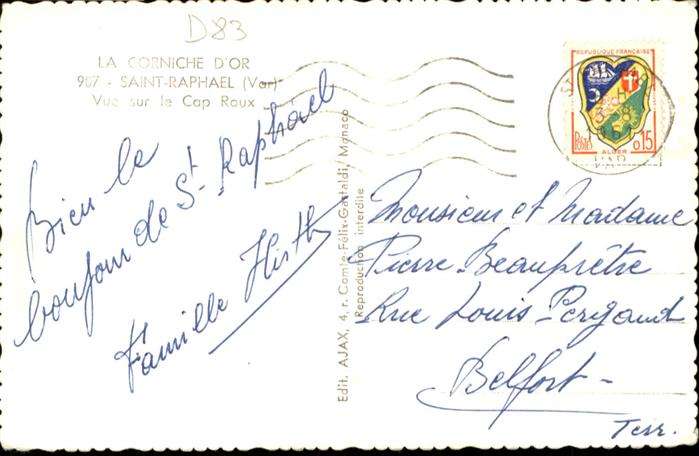 D83
LA CORNICHE D'OR
987 - SAINT-RAPHAEL (Var)
Vue sur le Cap Roux
Bien le
bonjour de St. Raphaël
Famille Hirth
Edit. AJAX, 4, r. Comte-Félix-Gastaldi, Monaco
Reproduction interdite
REPUBLIQUE FRANÇAISE
POSTES 0,15
ALGER
VAR
Monsieur et Madame
Pierre Beauprêtre
Rue Louis Pergaud
Belfort -
Terr.